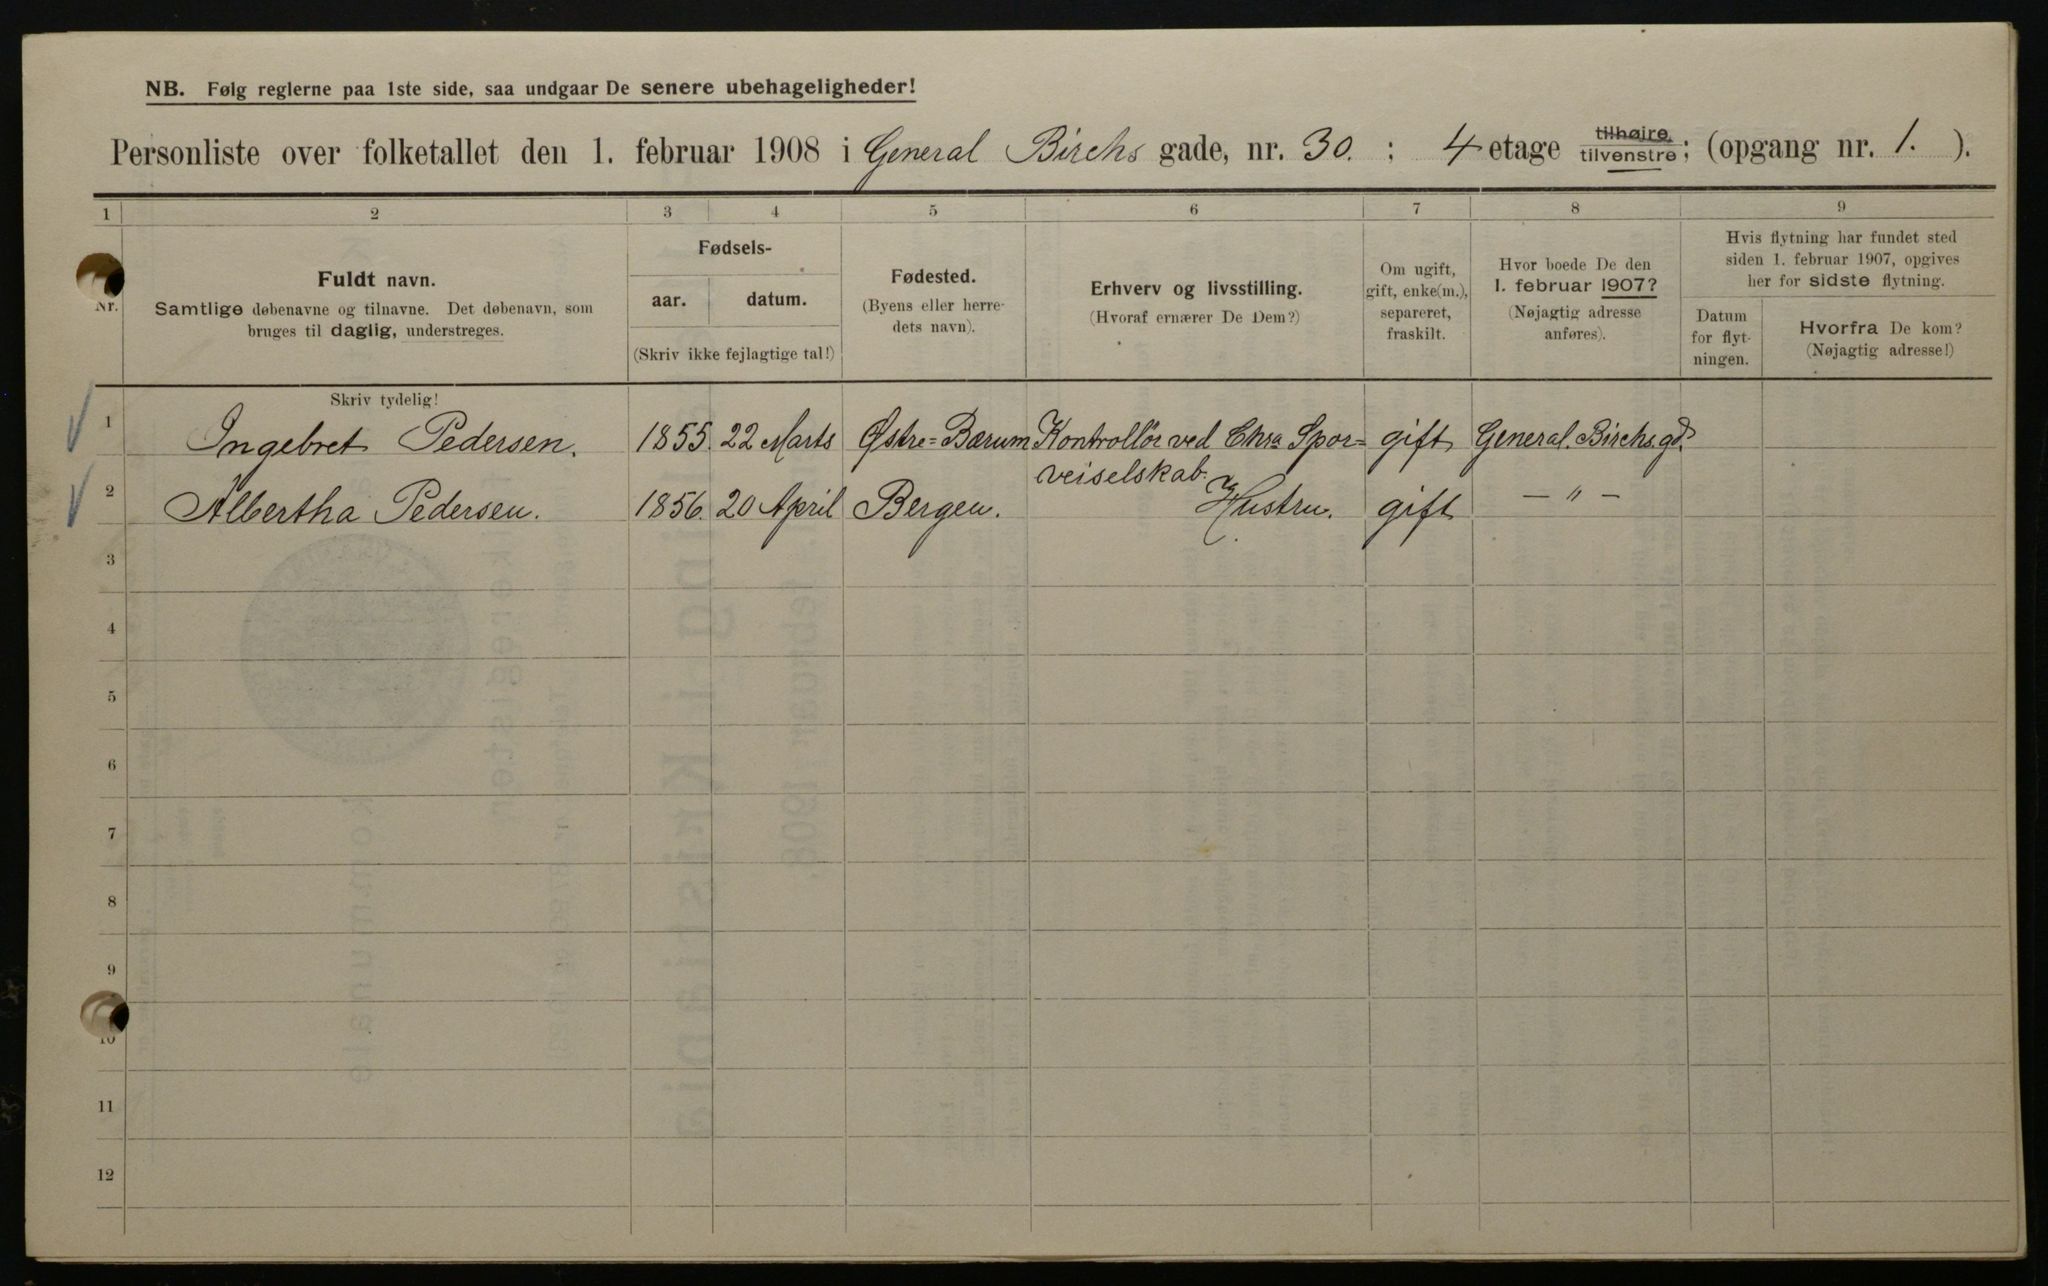 NB. Følg reglerne paa 1ste side, saa undgaar De senere ubehageligheder!
Personliste over folketallet den 1. februar 1908 i General Birchs gade, nr. 30. ; 4 etage tilhøire/tilvenstre; (opgang nr. 1. ).
1 2 3 4 5 6 7 8 9
Nr.
Fuldt navn.
Samtlige døbenavne og tilnavne. Det døbenavn, som
bruges til daglig, understreges.
Fødsels-
aar. datum.
(Skriv ikke fejlagtige tal!)
Fødested.
(Byens eller herre-
dets navn).
Erhverv og livsstilling.
(Hvoraf ernærer De Dem?)
Om ugift,
gift, enke(m.),
separeret,
fraskilt.
Hvor boede De den
1. februar 1907?
(Nøjagtig adresse
anføres).
Hvis flytning har fundet sted
siden 1. februar 1907, opgives
her for sidste flytning.
Datum
for flyt-
ningen.
Hvorfra De kom?
(Nøjagtig adresse!)
Skriv tydelig!
1 Ingebret Pedersen. 1855. 22 Marts Østre=Bærum Kontrollör ved Chra Spor= gift General. Birchs gd.
veiselskab.
2 Albertha Pedersen. 1856. 20 April Bergen. Hustru. gift — " —
3
4
5
6
7
8
9
10
11
12